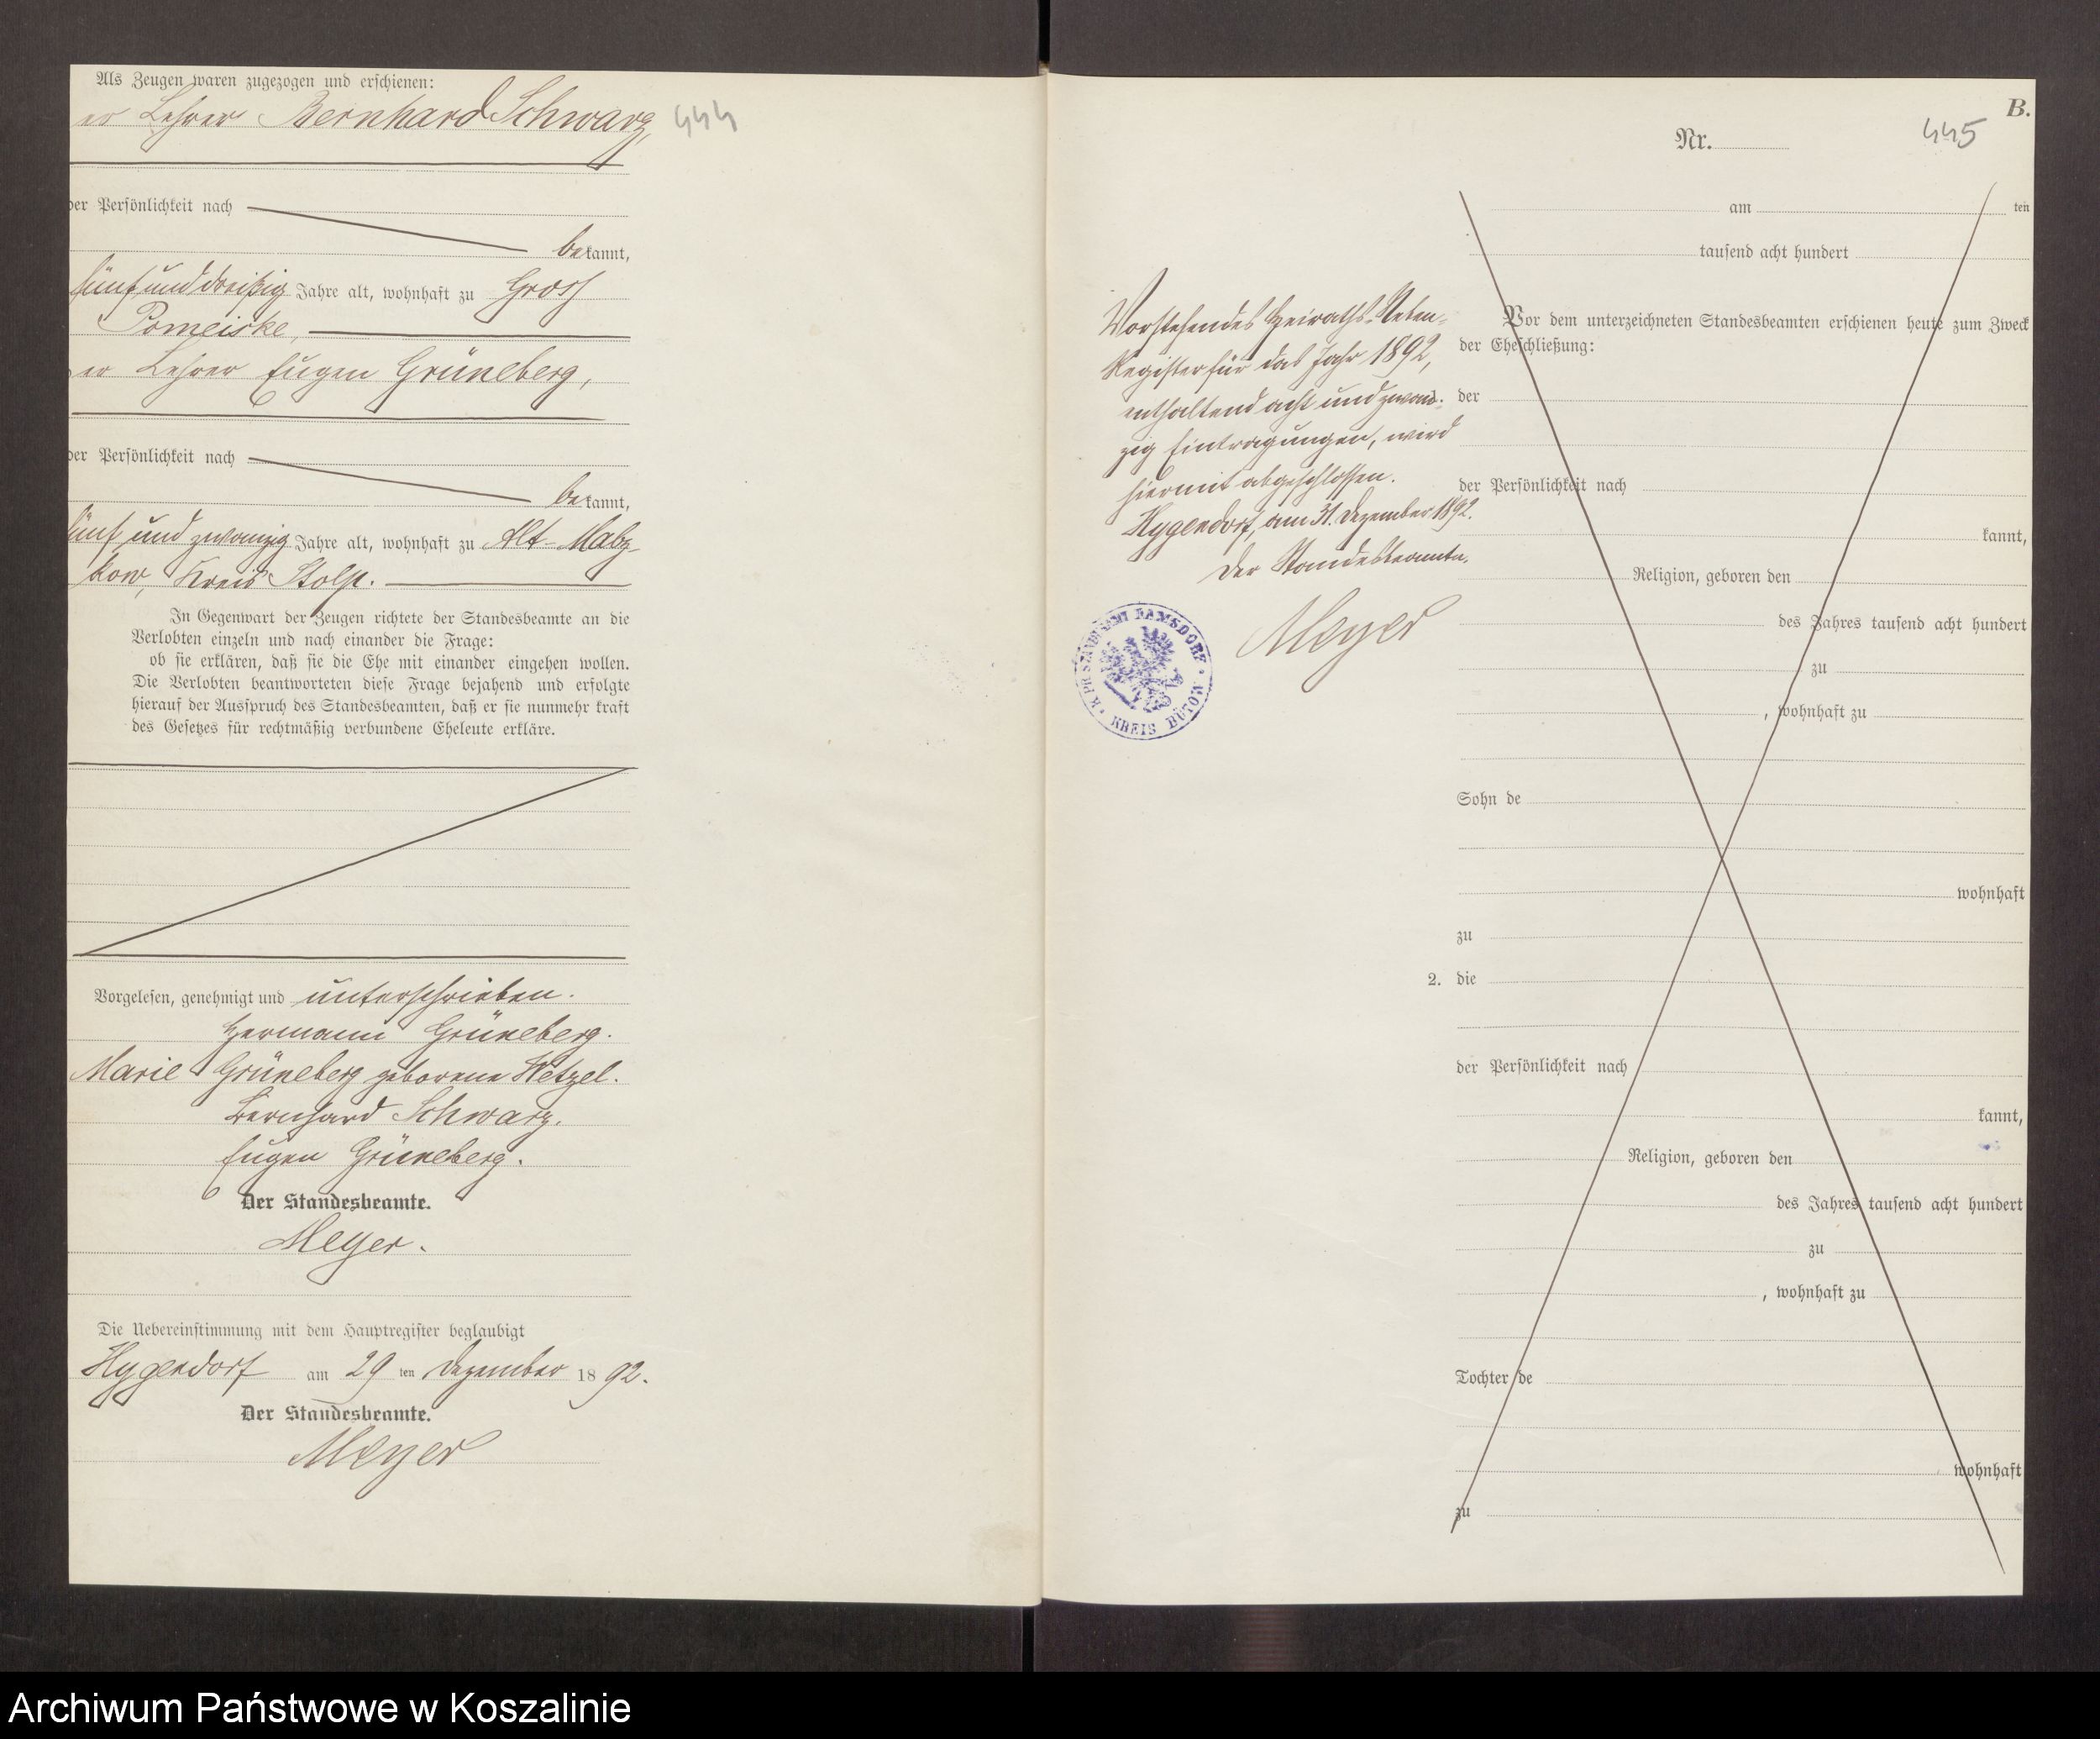 Als Zeugen waren zugezogen und erschienen:
er Lehrer Bernhard Schwarz,
444
der Persönlichkeit nach
bekannt,
fünf und dreißig Jahre alt, wohnhaft zu Gross
Pomeiske,
er Lehrer Eugen Grüneberg,
der Persönlichkeit nach
bekannt,
fünf und zwanzig Jahre alt, wohnhaft zu Alt-Mahz-
kow, Kreis Stolp.
In Gegenwart der Zeugen richtete der Standesbeamte an die
Verlobten einzeln und nach einander die Frage:
ob sie erklären, daß sie die Ehe mit einander eingehen wollen.
Die Verlobten beantworteten diese Frage bejahend und erfolgte
hierauf der Ausspruch des Standesbeamten, daß er sie nunmehr kraft
des Gesetzes für rechtmäßig verbundene Eheleute erkläre.
Vorgelesen, genehmigt und unterschrieben.
Hermann Grüneberg.
Marie Grüneberg geborene Wetzel.
Bernhard Schwarz.
Eugen Grüneberg.
Der Standesbeamte.
Meyer.
Die Uebereinstimmung mit dem Hauptregister beglaubigt
Hygendorf am 29 ten Dezember 1892.
Der Standesbeamte.
Meyer
B.
445
Nr.
am ten
tausend acht hundert
Vor dem unterzeichneten Standesbeamten erschienen heute zum Zweck
der Eheschließung:
der
der Persönlichkeit nach
kannt,
Religion, geboren den
des Jahres tausend acht hundert
zu
, wohnhaft zu
Sohn de
wohnhaft
zu
2. die
der Persönlichkeit nach
kannt,
Religion, geboren den
des Jahres tausend acht hundert
zu
, wohnhaft zu
Tochter de
wohnhaft
zu
Vorstehendes Heiraths-Neben-
Register für das Jahr 1892,
enthaltend acht und zwan-
zig Eintragungen, wird
hiermit abgeschlossen.
Hygendorf, am 31. Dezember 1892.
Der Standesbeamte.
Meyer
K. PR. STANDESAMT RAMSDORF
KREIS BÜTOW
Archiwum Państwowe w Koszalinie